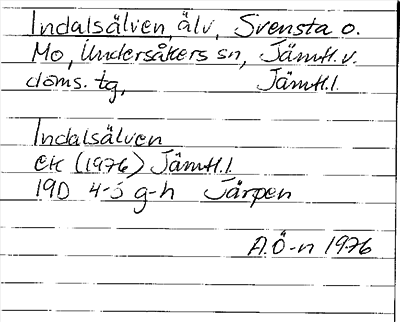 Indalsälven, älv, Svensta o.
Mo, Undersåkers sn, Jämtl.v.
doms. tg, Jämtl.l.
Indalsälven
EK (1976) Jämtl.l.
19D 4-5 g-h Järpen
A.Ö-n 1976